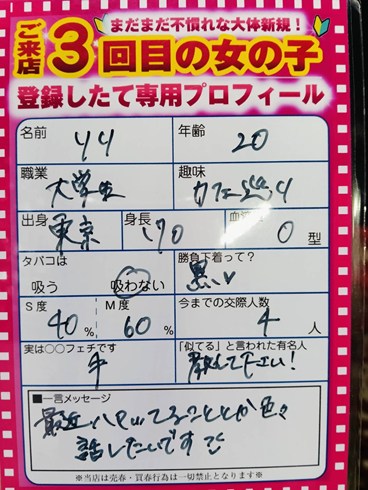 まだまだ不慣れな大体新規！
ご来店3回目の女の子
登録したて専用プロフィール
名前 yy 年齢 20
職業 大学生 趣味 カフェ巡り
出身 東京 身長 170 血液 O 型
タバコは 吸う 吸わない 勝負下着って？ 黒い♡
S度 40% M度 60% 今までの交際人数 4人
実は○○フェチです 手 「似てる」と言われた有名人 教えて下さい！
■一言メッセージ
最近ハマってることとか色々
話したいです
※当店は売春・買春行為は一切禁止となります※